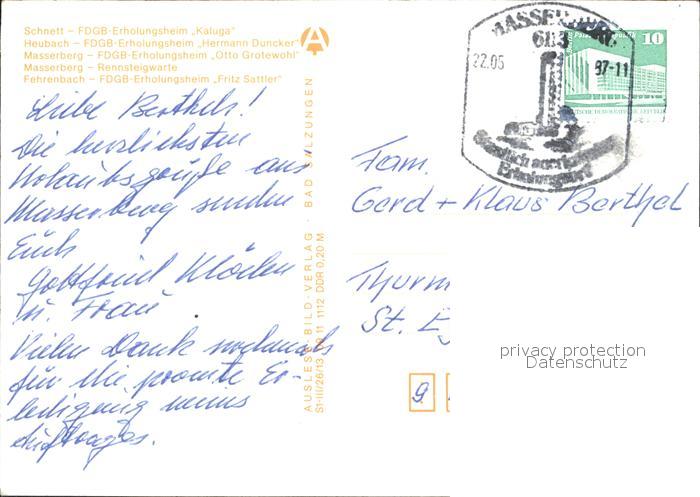 Schnett – FDGB-Erholungsheim „Kaluga"
Heubach – FDGB-Erholungsheim „Hermann Duncker"
Masserberg – FDGB-Erholungsheim „Otto Grotewohl"
Masserberg – Rennsteigwarte
Fehrenbach – FDGB-Erholungsheim „Fritz Sattler"
Liebe Berthels!
Die herzlichsten
Urlaubsgrüße aus
Masserberg senden
Euch
Gottfried
u. Frau
Vielen Dank nochmals
für die promte Er-
ledigung meines
Auftrages.
AUSLESE-BILD-VERLAG · BAD SALZUNGEN
S1-III/26/13 11 1112 DDR 0,20 M
MASSERBERG
22.05 87-11
Staatlich anerkannter
Erholungsort
10
Fam.
Gerd + Klaus Berthel
Thurm
St.
9
privacy protection
Datenschutz